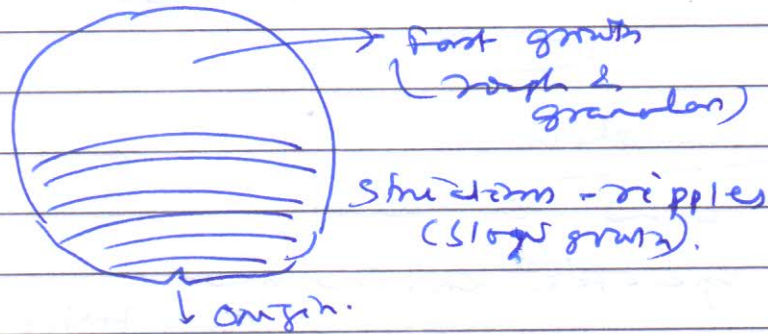 Fast growth
(rough &
granular)
Striations - ripples
(Slow growth).
origin.